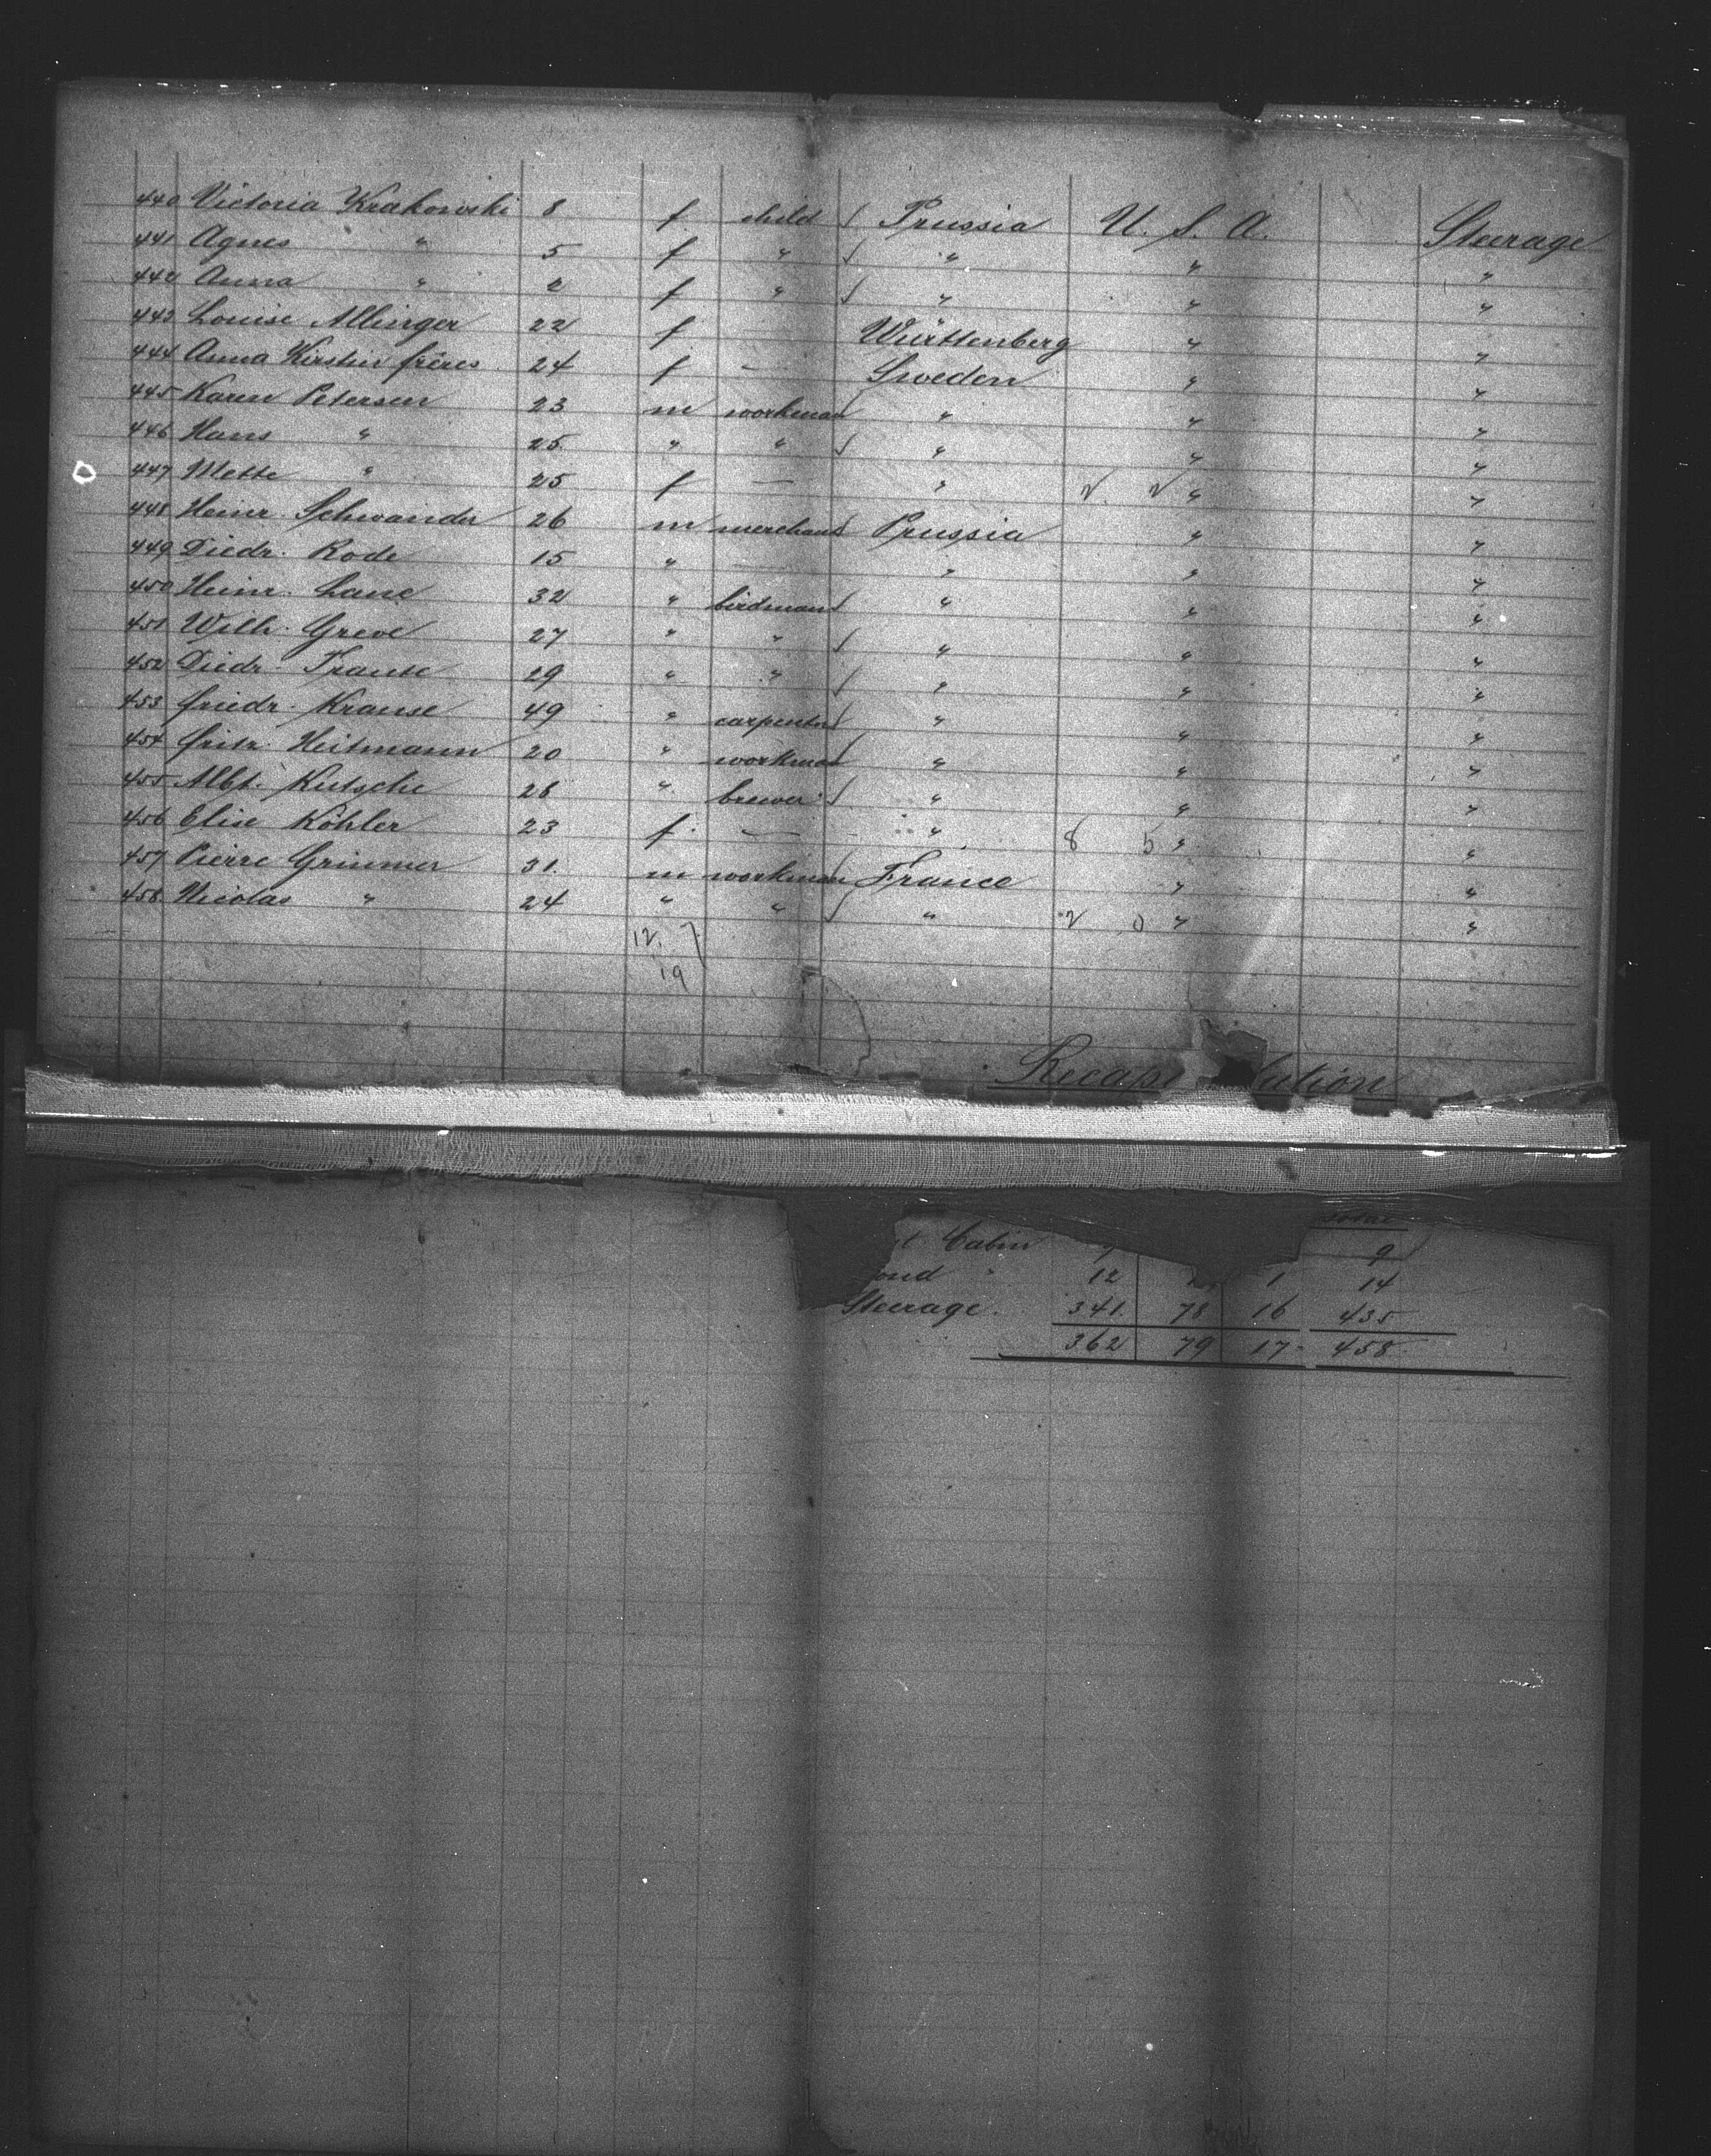 440 Victoria Krakowski 8 f. child Prussia U. S. A. Steerage
441 Agnes " 5 f " " " "
442 Anna " 2 f " " " "
443 Louise Allinger 22 f — Württenberg " "
444 Anna Kirstin frères 24 f — Sweden " "
445 Karen Petersen 23 m workman " " "
446 Hans " 25. " " " " "
447 Mette " 25 f — " 2 2 " "
448 Heinr. Schwander 26 m merchant Prussia " "
449 Diedr. Rode 15 " — " " "
450 Heinr. Lane 32 " birdman " " "
451 Wilh. Greve 27 " " " " "
452 Diedr. Franse 29 " " " " "
453 Friedr. Krause 49 " carpenter " " "
454 Fritz. Heitmann 20 " workman " " "
455 Albt. Kutsche 28 " brewer " " "
456 Elise Köhler 23 f. — " 8 5 " "
457 Pierre Grimmer 31. m workman France " "
458 Nicolas " 24 " " " 2 0 " "
12.
19
Recapi ulation
total
t Cabin 9 9
ond " 12 1 14
Steerage. 341. 78 16 435
362 79 17 458